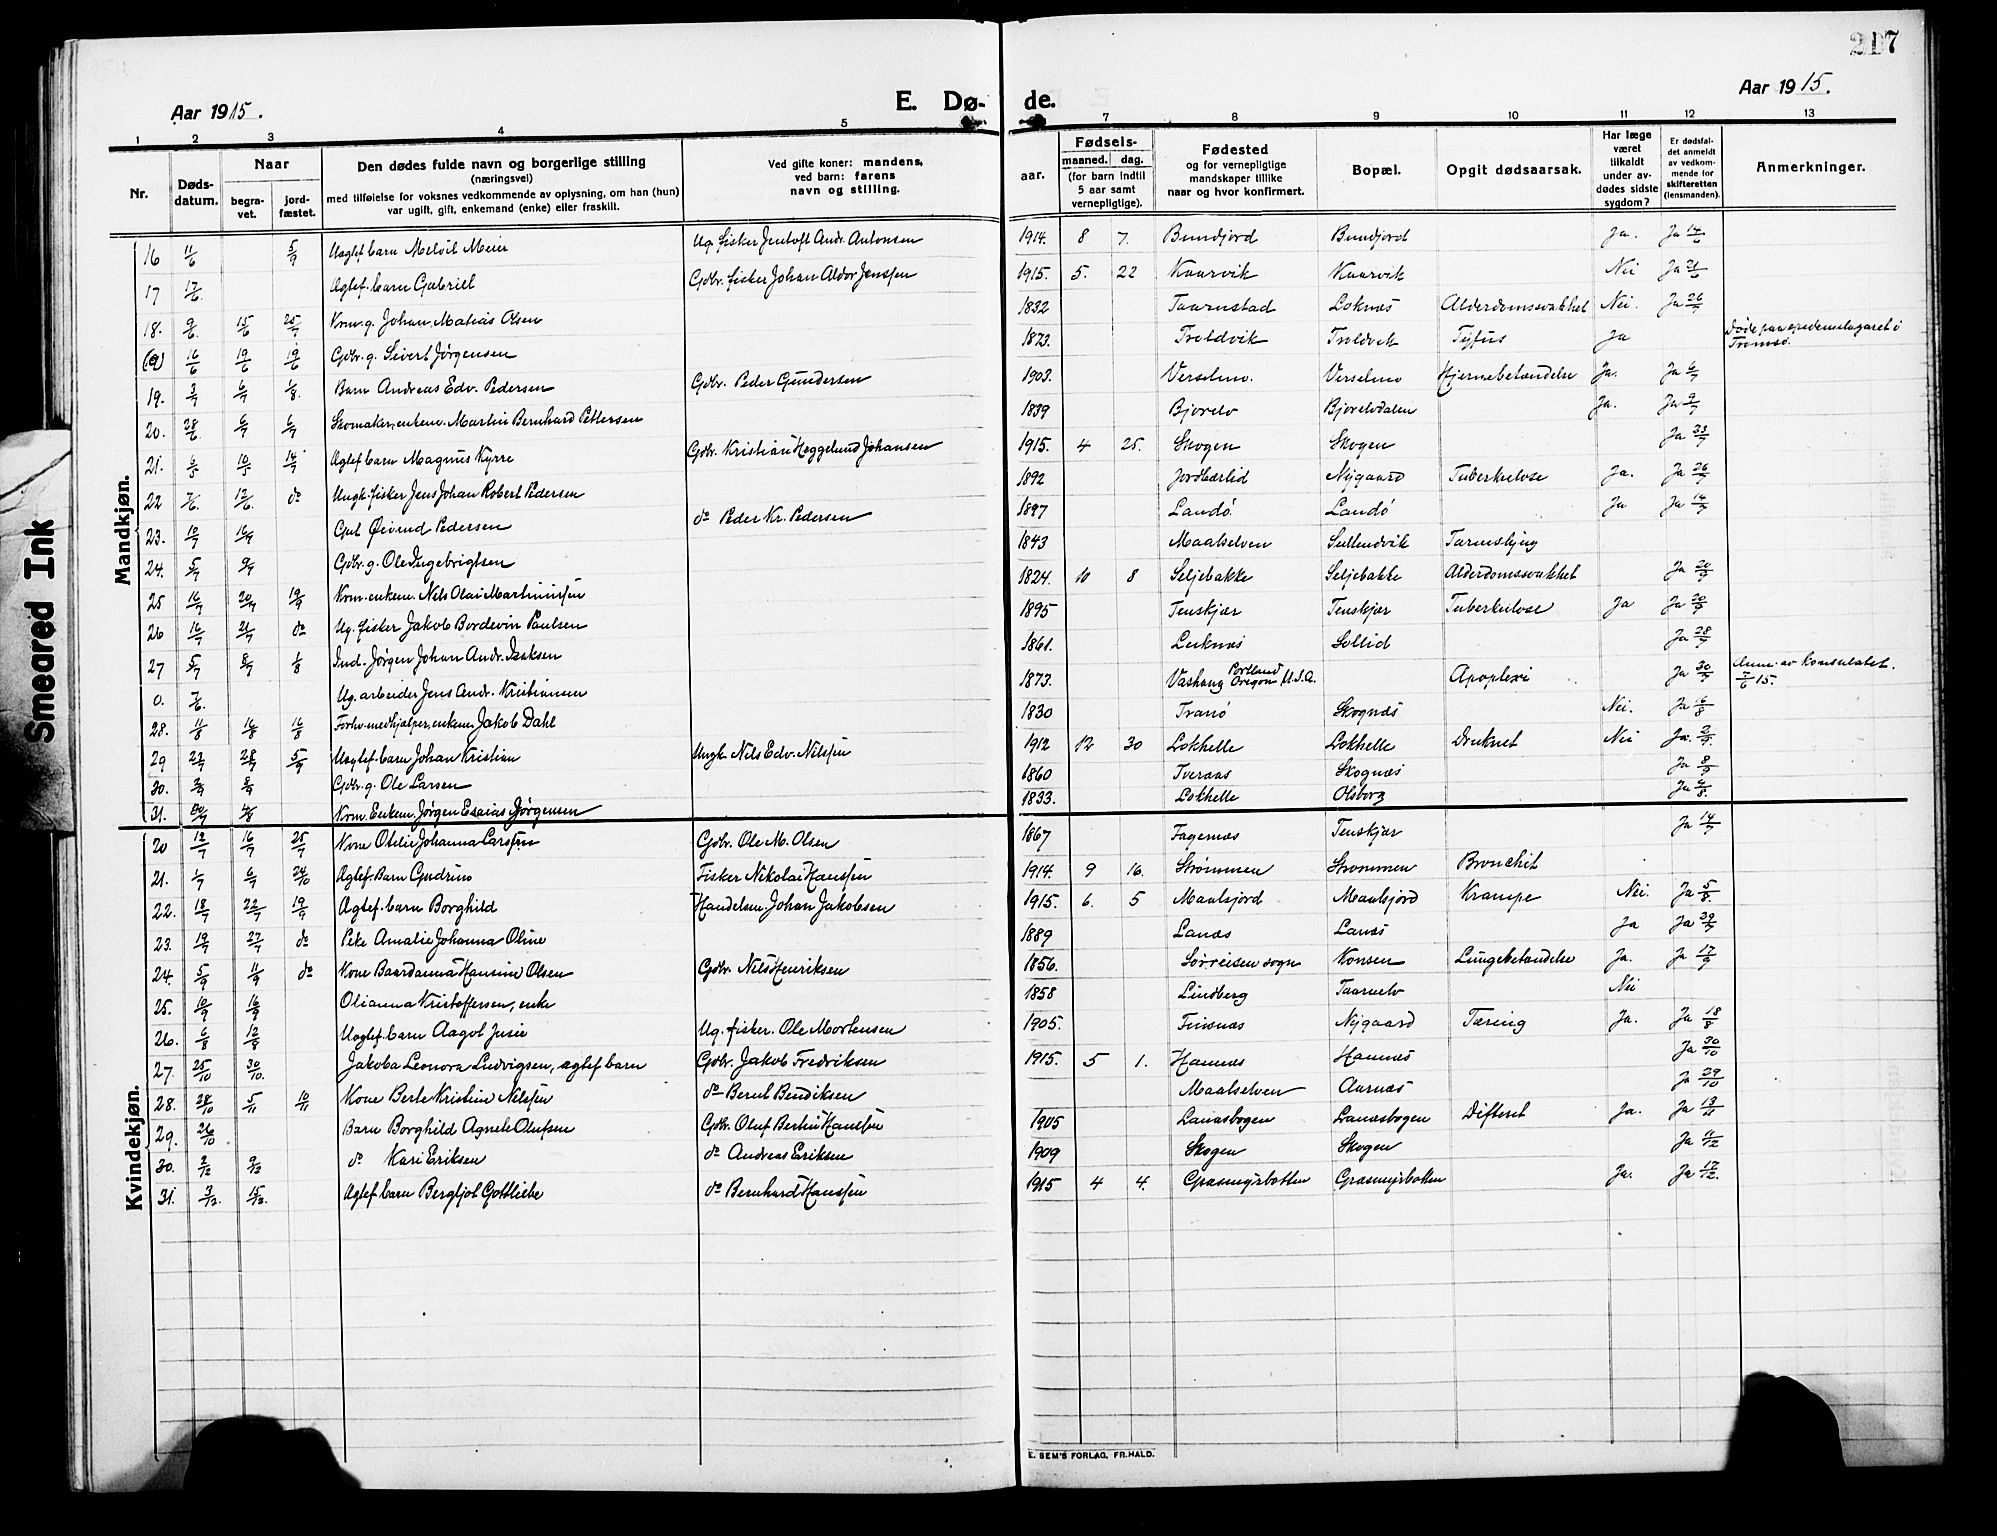 217
Aar 1915.
E. Dø-
de.
Aar 1915.
1 2 3 4 5 7 8 9 10 11 12 13
Nr.
Døds-
datum.
Naar
begra-
vet.
jord-
fæstet.
Den dødes fulde navn og borgerlige stilling
(næringsvei)
med tilføielse for voksnes vedkommende av oplysning, om han (hun)
var ugift, gift, enkemand (enke) eller fraskilt.
Ved gifte koner: mandens,
ved barn: farens
navn og stilling.
aar.
Fødsels-
maaned. dag.
(for barn indtil
5 aar samt
vernepligtige).
Fødested
og for vernepligtige
mandskaper tillike
naar og hvor konfirmert.
Bopæl.
Opgit dødsaarsak.
Har læge
været
tilkaldt
under av-
dødes sidste
sygdom?
Er dødsfal-
det anmeldt
av vedkom-
mende for
skifteretten
(lensmanden).
Anmerkninger.
Mandkjøn.
16 11/6 5/9 Uegtef. barn Melvil Meier Ug. fisker Jentoft Andr. Antonsen 1914. 8 7. Bundjord Bundjord Ja. Ja 14/6
17 17/6. Ægtef. barn Gabriel Gdbr. fisker Johan Aldor Jenssen 1915. 5. 22 Kaarvik Kaarvik Nei Ja 21/6
18. 9/6 15/6 25/7 Krm. g. Johan Matias Olsen 1832 Taarnstad Loknæs Alderdomssvakhet Nei. Ja 26/7
16/6 19/6 19/6 Gdbr. g. Sivert Jørgensen 1873. Troldvik Troldvik Tyfus Ja Døde paa epidemilagaret i
Tromsø.
19. 3/7 6/7 1/8. Barn Andreas Edv. Pedersen Gdbr. Peder Gundersen 1903. Verselmo. Verselmo Hjernebetændelse Ja. Ja 6/7
20. 28/6 6/7 6/7 Skomaker, enkem. Martin Bernhard Pettersen 1839 Bjorelv Bjorelvdalen Ja. Ja 9/7
21. 10/7 14/7 Ægtef. barn Magnus Kyrre Gdbr. Kristian Heggelund Johansen 1915. 4 25. Skogen Skogen Ja 23/7
22 7/6. 12/6. do Ungk. fisker Jens Johan Robert Pedersen 1892 Jordbærlid Nygaard Tuberkulose Ja. Ja 26/7
23. 10/7 16/7 Gut Øivind Pedersen do Peder Kr. Pedersen 1897 Landø Landø Ja Ja 14/7
24. 5/7 9/7 Gdbr. g. Ole Ingebrigtsen 1843 Maalselven Sultendvik Tarmslyng
25 16/7 20/7 19/9 Krm. enkem. Nels Olai Martinussen 1824. 10 8 Seljebakke Seljebakke Alderdomssvakhet Ja 20/7
26 16/7 21/7 do Ug. fisker Jakob Bordevin Paulsen 1895 Tenskjær Tenskjær Tuberkulose Ja Ja 20/7
27 5/7 8/7 1/8 Ind. Jørgen Johan Andr. Isaksen 1861. Leiknæs Sollid Ja 28/7
0. 7/6. Ug. arbeider Jens Andr. Kristiansen 1873. Vashaug Portland
Oregon U.S.A. Apoplexi Ja 30/7 Anm. av konsulatet.
7/6 15.
28. 11/8 16/8 16/8 Forhv. medhjælper, enkem. Jakob Dahl 1830 Tranø Skognæs Nei. Ja 16/8
29 28/7 5/9 Uegtef. barn Johan Kristian Ungk. Nils Edv. Nilssen 1912 12 30 Lokhelle Lokhelle Druknet Nei Ja. 2/9.
30. Gdbr. g. Ole Larsen 1860 Tveraas Skognæs Ja 8/9
31. Krm. Enkem. Jørgen Esaias Jørgensen 1833. Lokhelle Olsborg
Kvindekjøn.
20 12/7 16/7 25/7 Kone Otelie Johanna Larssen Gdbr. Ole M. Olsen 1867 Fagernæs Tenskjær Ja 14/7
21. 1/7 6/7 24/10 Ægtef. Barn Gudrun Fisker Nikolai Hanssen 1914 9 16. Strømmen Strømmen Bronchit
22. 18/7 22/7 19/9 Ægtef. barn Borghild Handelsm. Johan Jakobsen 1915. 6. 5 Maalsjord Maalsjord Krampe Nei. Ja 5/8.
23. 19/7 27/7 do Peke Amalie Johanna Oline 1889 Lanæs Lanæs Ja Ja 29/7
24. 5/9 11/9 do Kone Baardanna Hansine Olsen Gdbr. Nils Henriksen 1856. Sørreisen sogn Konsen Lungebetændelse Ja. Ja 17/9
25. 10/9 16/9 Olianna Kristoffersen, enke 1858 Lindberg Taarnelv Nei
26. 6/8 12/8 Uegtef. barn Aagot Jusie Ug. fisker. Ole Mortensen 1905. Finsnæs Nygaard Tæring Ja. Ja 18/8
27. 25/10 30/10. Jakoba Leonora Ludvigsen, ægtef barn Gdbr. Jakob Fredriksen 1915. 5 1. Hamnæs Hamnæs Ja 30/10
28. 28/10 5/11 10/11 Kone Berte Kristine Nelssen do Bernt Bendiksen Maalselven Aarnæs Ja 29/10
29. 26/10 Barn Borghild Agnete Olufsen Gdbr. Oluf Bertin Hanssen 1905 Lanæsbogen Lanæsbogen Difterit Ja. Ja 13/11
30. 2/12 9/12 do Kari Eriksen do Andreas Eriksen 1909 Skogen Skogen Ja 11/12
31. 3/12. 15/12. Ægtef barn Bergljot Gottliebe do Bernhard Hanssen 1915 4 4. Græsmyrbotten Græsmyrbotten Ja. Ja 17/12.
E. SEM'S FORLAG, FR.HALD.
Smeared Ink